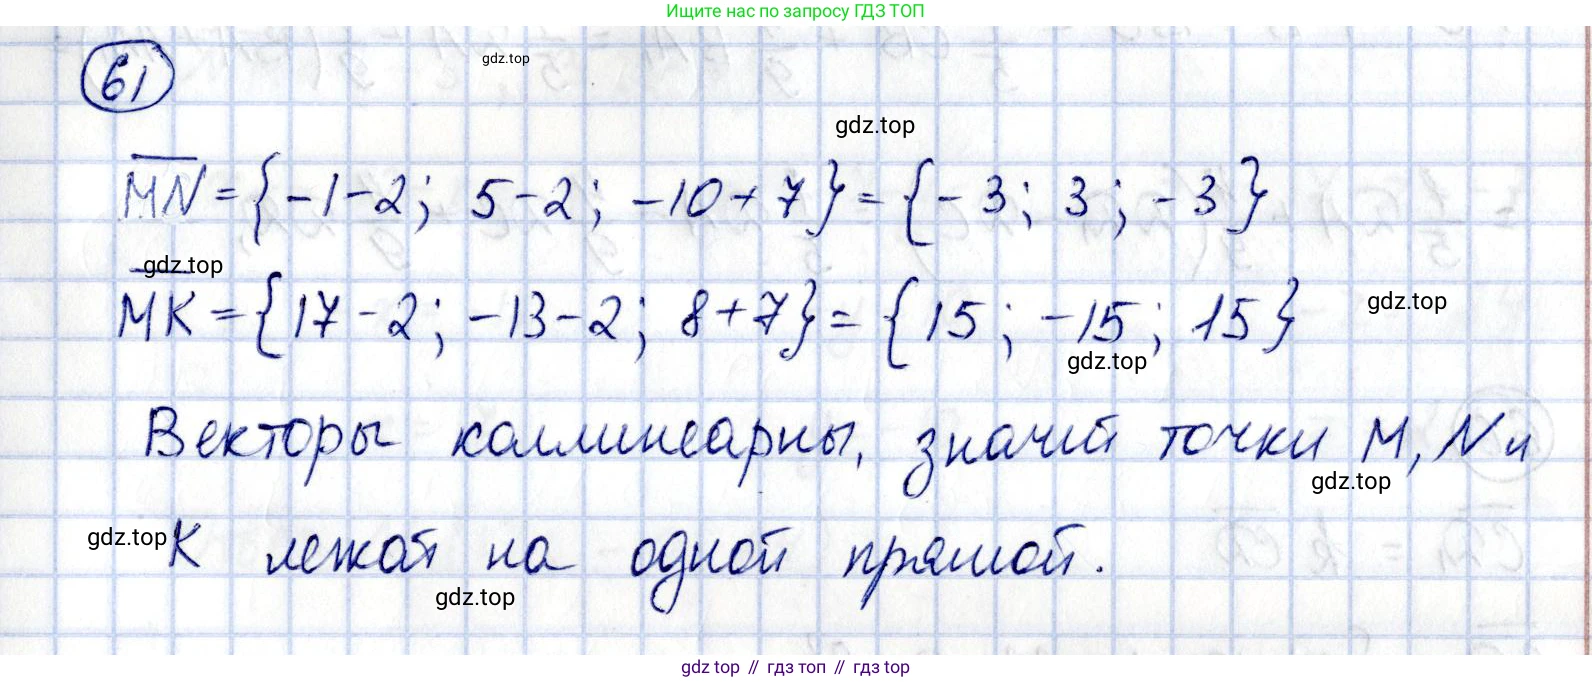 Ищите нас по запросу ГДЗ ТОП
61
gdz.top
gdz.top
MN = {-1-2; 5-2; -10+7} = {-3; 3; -3}
gdz.top
MK = {17-2; -13-2; 8+7} = {15; -15; 15}
gdz.top
gdz.top
Векторы коллинеарны, значит точки M, N и
gdz.top
gdz.top K лежат на одной прямой.
gdz.top
gdz top // гдз топ // гдз top